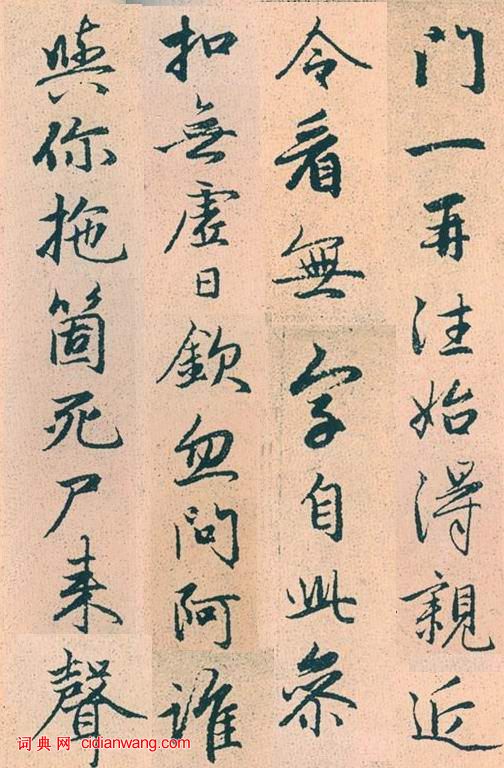 門一再往始得親近
令看無字自此參
扣無虛日欽忽問阿誰
與你拖箇死尸来聲
词典网 cidianwang.com